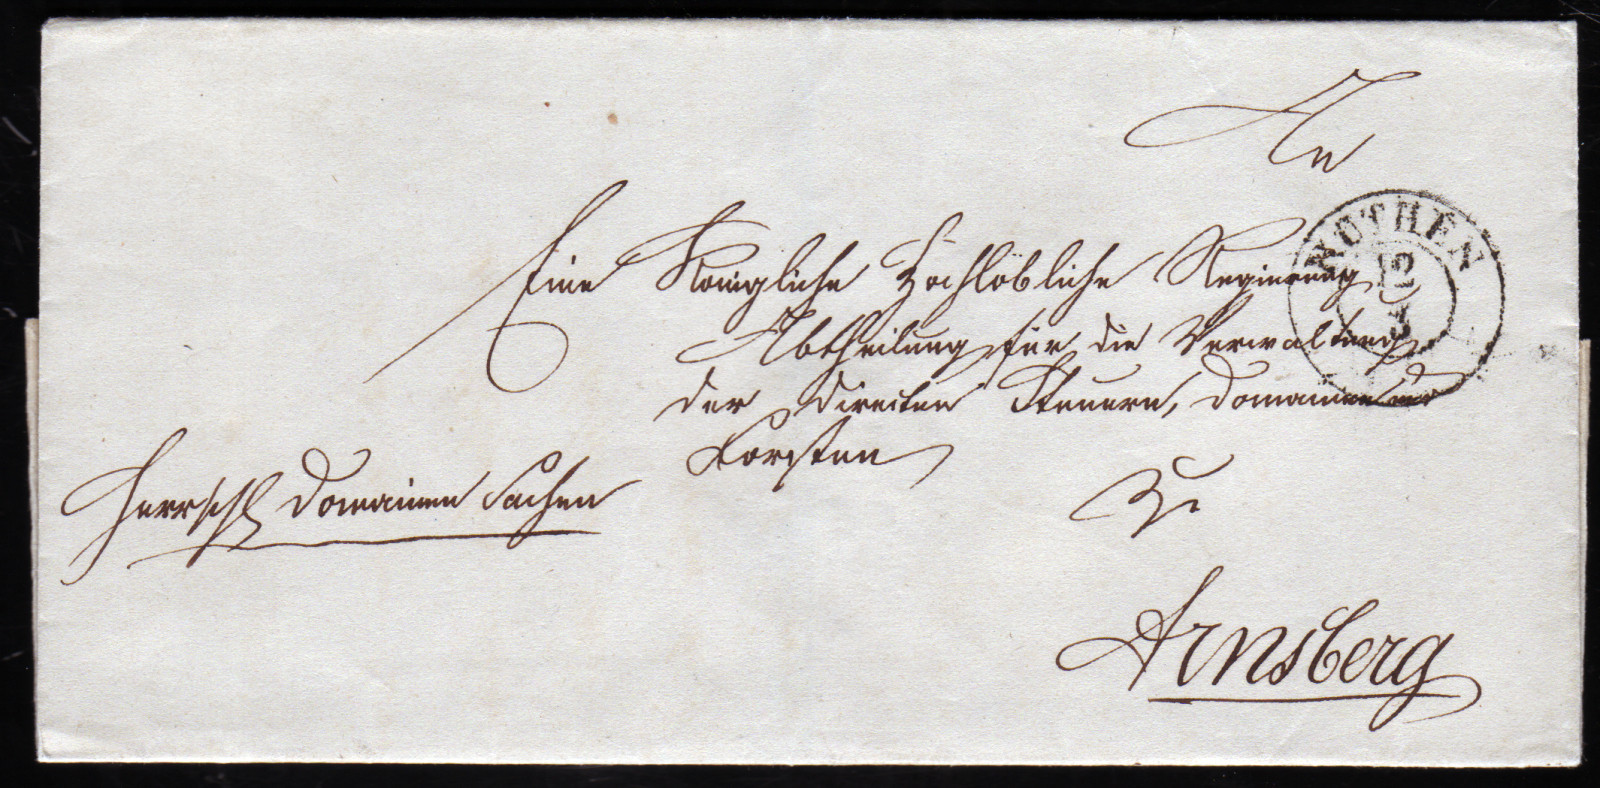 An
Eine Königliche Hochlöbliche Regierung
Abtheilung für die Verwaltung
der directen Steuern, Domainen und
Forsten
Herrschl Domainen Sachen
zu
Arnsberg
RÜTHEN
12
3